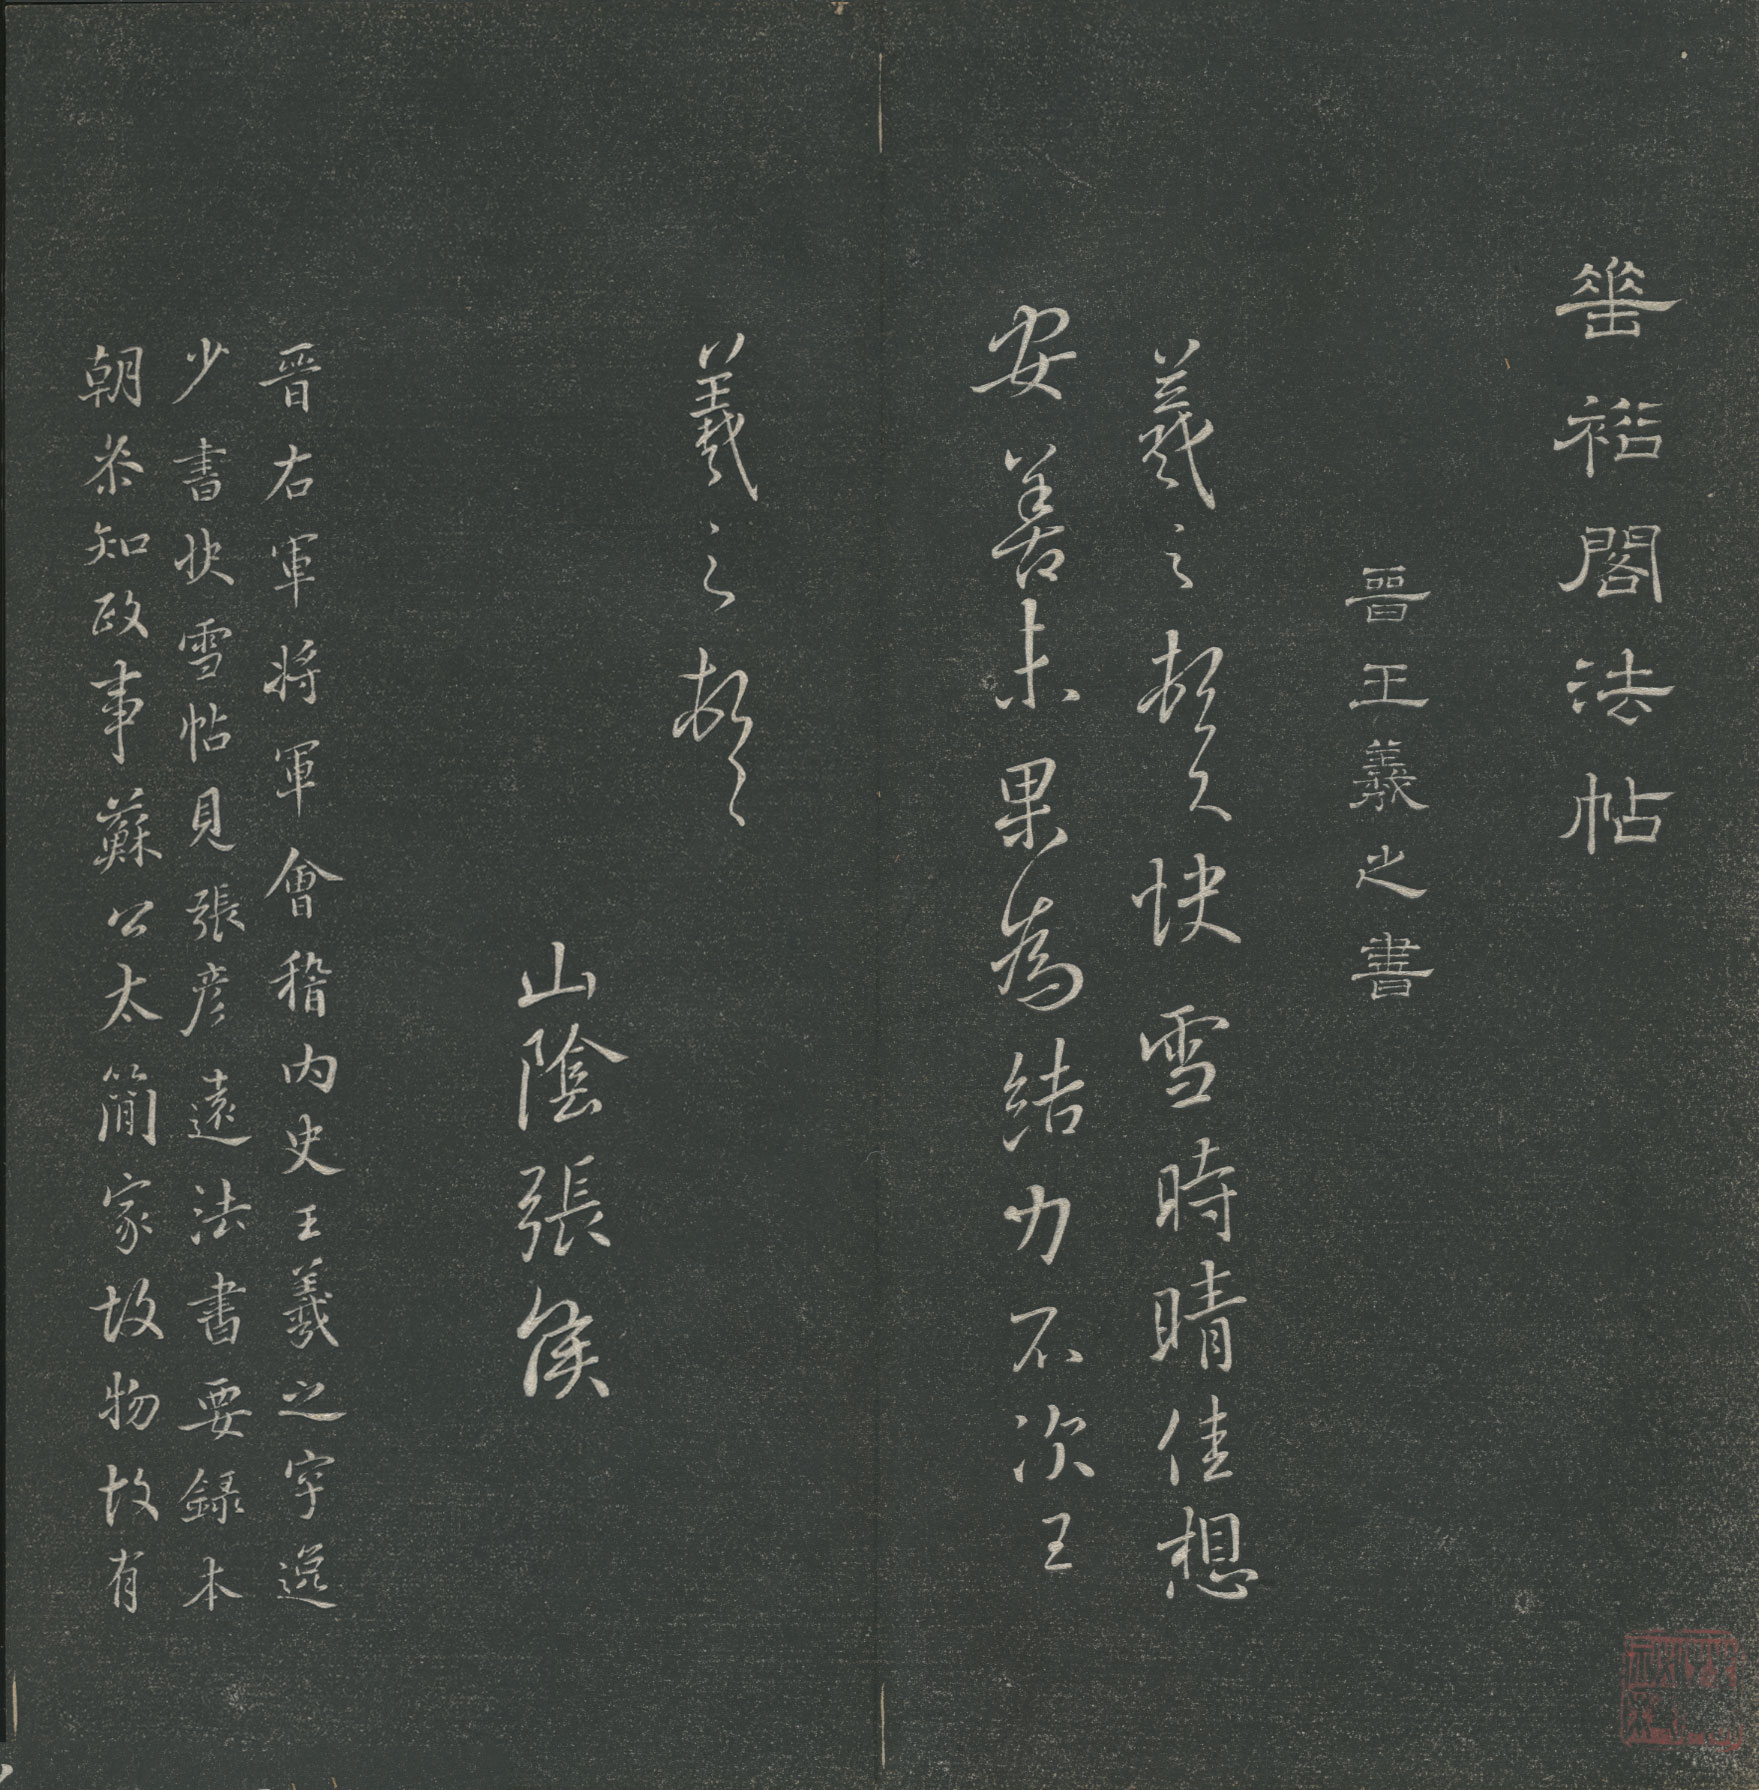 崋袼閣法帖
晉王羲之書
羲之頓首快雪時晴佳想
安善未果為結力不次王
羲之頓首
山陰張侯
晉右軍將軍會稽內史王羲之字逸
少書快雪帖見張彥遠法書要録本
朝叅知政事蘇公太簡家故物故有